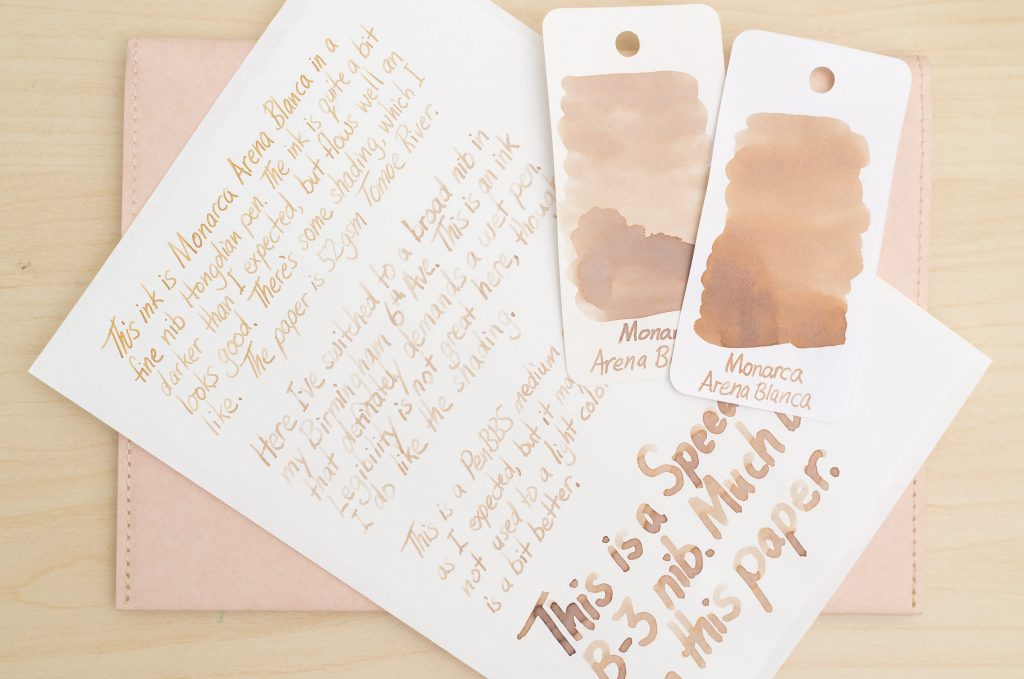 This ink is Monarca Arena Blanca in a
fine nib Hongdian pen. The ink is quite a bit
darker than I expected, but flows well an
looks good. There's some shading, which I
like. The paper is 52gsm Tomoe River.
Here I've switched to a broad nib in
my Birmingham 6th Ave. This is an ink
that definitely demands a wet pen.
Legibility is not great here, though
I do like the shading.
This is a PenBBS medium
as I expected, but it
not used to a light
is a bit better.
This is a
B-3 nib. Much
this paper.
Monarca
Arena Blanca